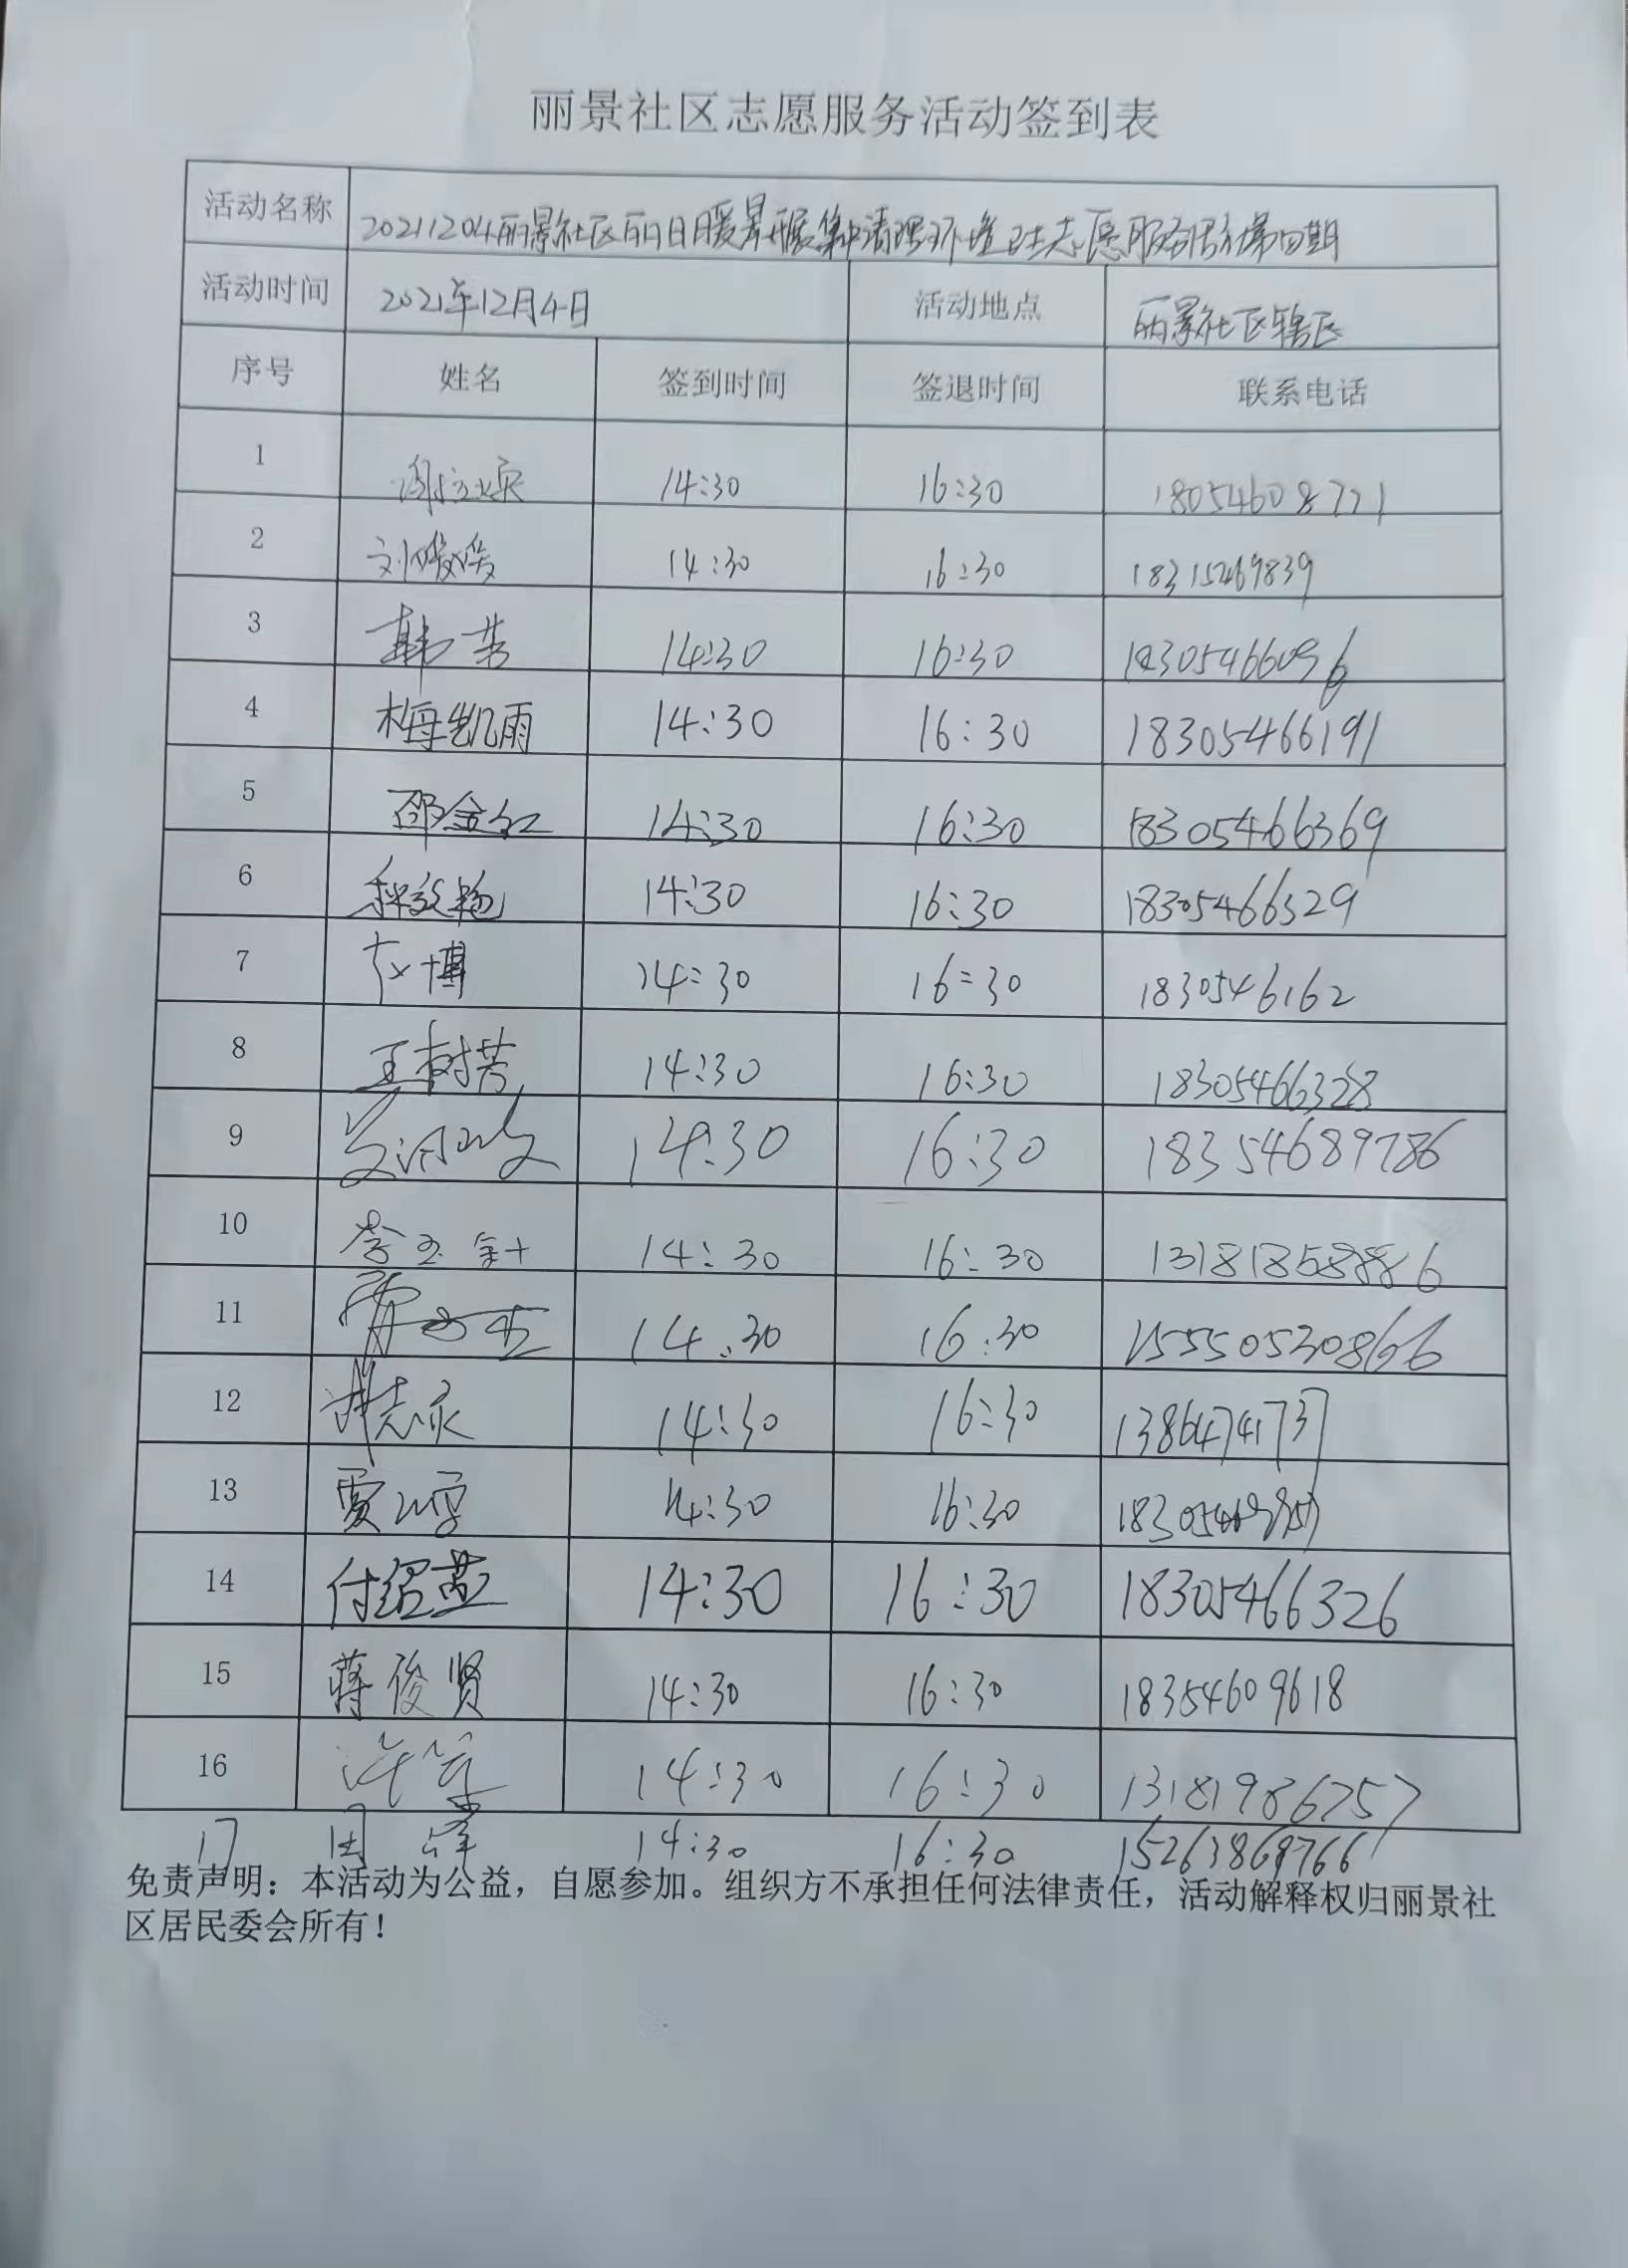 丽景社区志愿服务活动签到表
活动名称 20211204丽景社区丽日暖景开展集中清理环境卫生志愿服务活动第四期
活动时间 2021年12月4日 活动地点 丽景社区辖区
序号 姓名 签到时间 签退时间 联系电话
1 14:30 16:30 18054608771
2 刘媛媛 14:30 16:30 18315469839
3 韩芳 14:30 16:30 18305466096
4 梅凯雨 14:30 16:30 18305466191
5 邵金红 14:30 16:30 18305466369
6 14:30 16:30 18305466329
7 14:30 16:30 1830546162
8 王树芳 14:30 16:30 18305466328
9 14:30 16:30 18354689786
10 14:30 16:30
11 14:30 16:30 15550530866
12 14:30 16:30
13 贾雪 14:30 16:30
14 付绍燕 14:30 16:30 18305466326
15 蒋俊贤 14:30 16:30 18354609618
16 14:30 16:30 13181986757
17 周 14:30 16:30 15263869766
免责声明：本活动为公益，自愿参加。组织方不承担任何法律责任，活动解释权归丽景社
区居民委会所有！